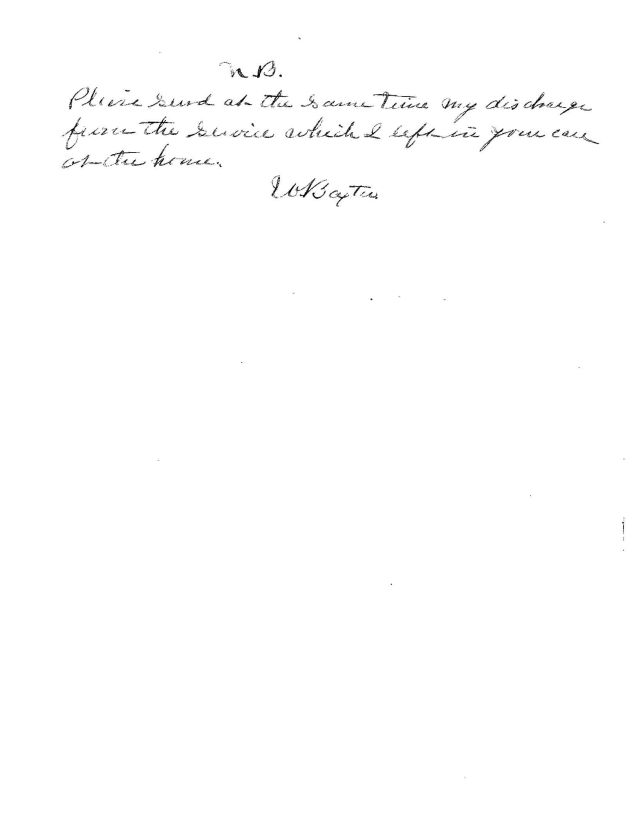 N.B.
Please send at the same time my discharge
from the service which I left in your care
at the home.
W Baxter